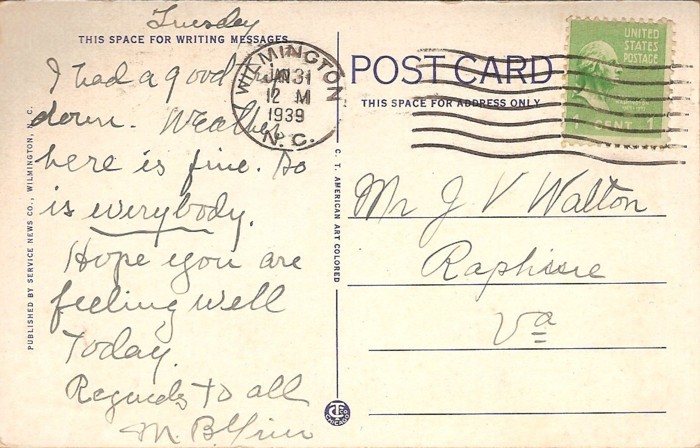 Tuesday
THIS SPACE FOR WRITING MESSAGES
I had a good trip
down. Weather
here is fine. So
is everybody.
Hope you are
feeling well
Today.
Regards to all
M. B.
PUBLISHED BY SERVICE NEWS CO., WILMINGTON, N. C.
C. T. AMERICAN ART COLORED
WILMINGTON
JAN 31
12 M
1939
N. C.
POST CARD
THIS SPACE FOR ADDRESS ONLY
UNITED
STATES
POSTAGE
1 CENT 1
Mr J V Walton
Va
CT
CHICAGO